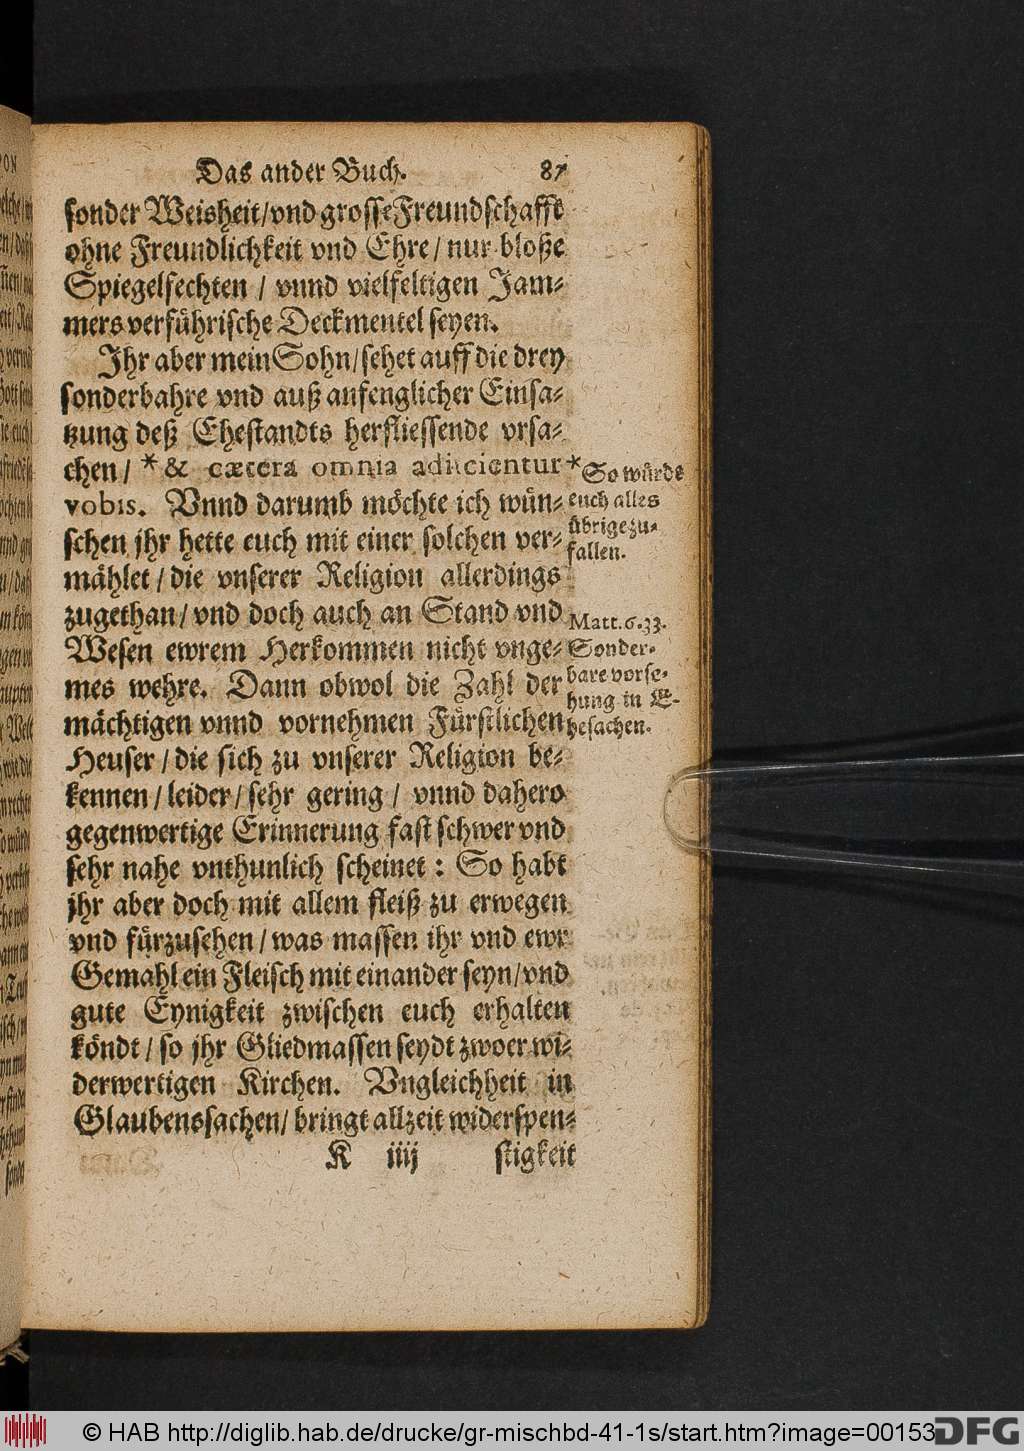 Das ander Buch. 87
sonder Weisheit/vnd grosse Freundschafft
ohne Freundlichkeit vnd Ehre/ nur bloße
Spiegelfechten / vnnd vielfeltigen Jam-
mers verführische Deckmentel seyen.
Jhr aber mein Sohn/sehet auff die drey
sonderbahre vnd auß anfenglicher Einsa-
tzung deß Ehestandts herfliessende vrsa-
chen/ * & cætera omnia adiicientur
vobis. Vnnd darumb möchte ich wün-
schen jhr hette euch mit einer solchen ver-
mählet/ die vnserer Religion allerdings
zugethan/ vnd doch auch an Stand vnd
Wesen ewrem Herkommen nicht vnge-
mes wehre. Dann obwol die Zahl der
mächtigen vnnd vornehmen Fürstlichen
Heuser/ die sich zu vnserer Religion be-
kennen/ leider/ sehr gering/ vnnd dahero
gegenwertige Erinnerung fast schwer vnd
sehr nahe vnthunlich scheinet: So habt
jhr aber doch mit allem fleiß zu erwegen
vnd fürzusehen/ was massen ihr vnd ewr
Gemahl ein Fleisch mit einander seyn/ vnd
gute Eynigkeit zwischen euch erhalten
köndt/ so jhr Gliedmassen seydt zwoer wi-
derwertigen Kirchen. Vngleichheit in
Glaubenssachen/ bringt allzeit widerspen-
K iiij stigkeit
* So würde
euch alles
übrige zu-
fallen.
Matt. 6. 33.
Sonder-
bare vorse-
hung in E-
hesachen.
© HAB http://diglib.hab.de/drucke/gr-mischbd-41-1s/start.htm?image=00153
DFG